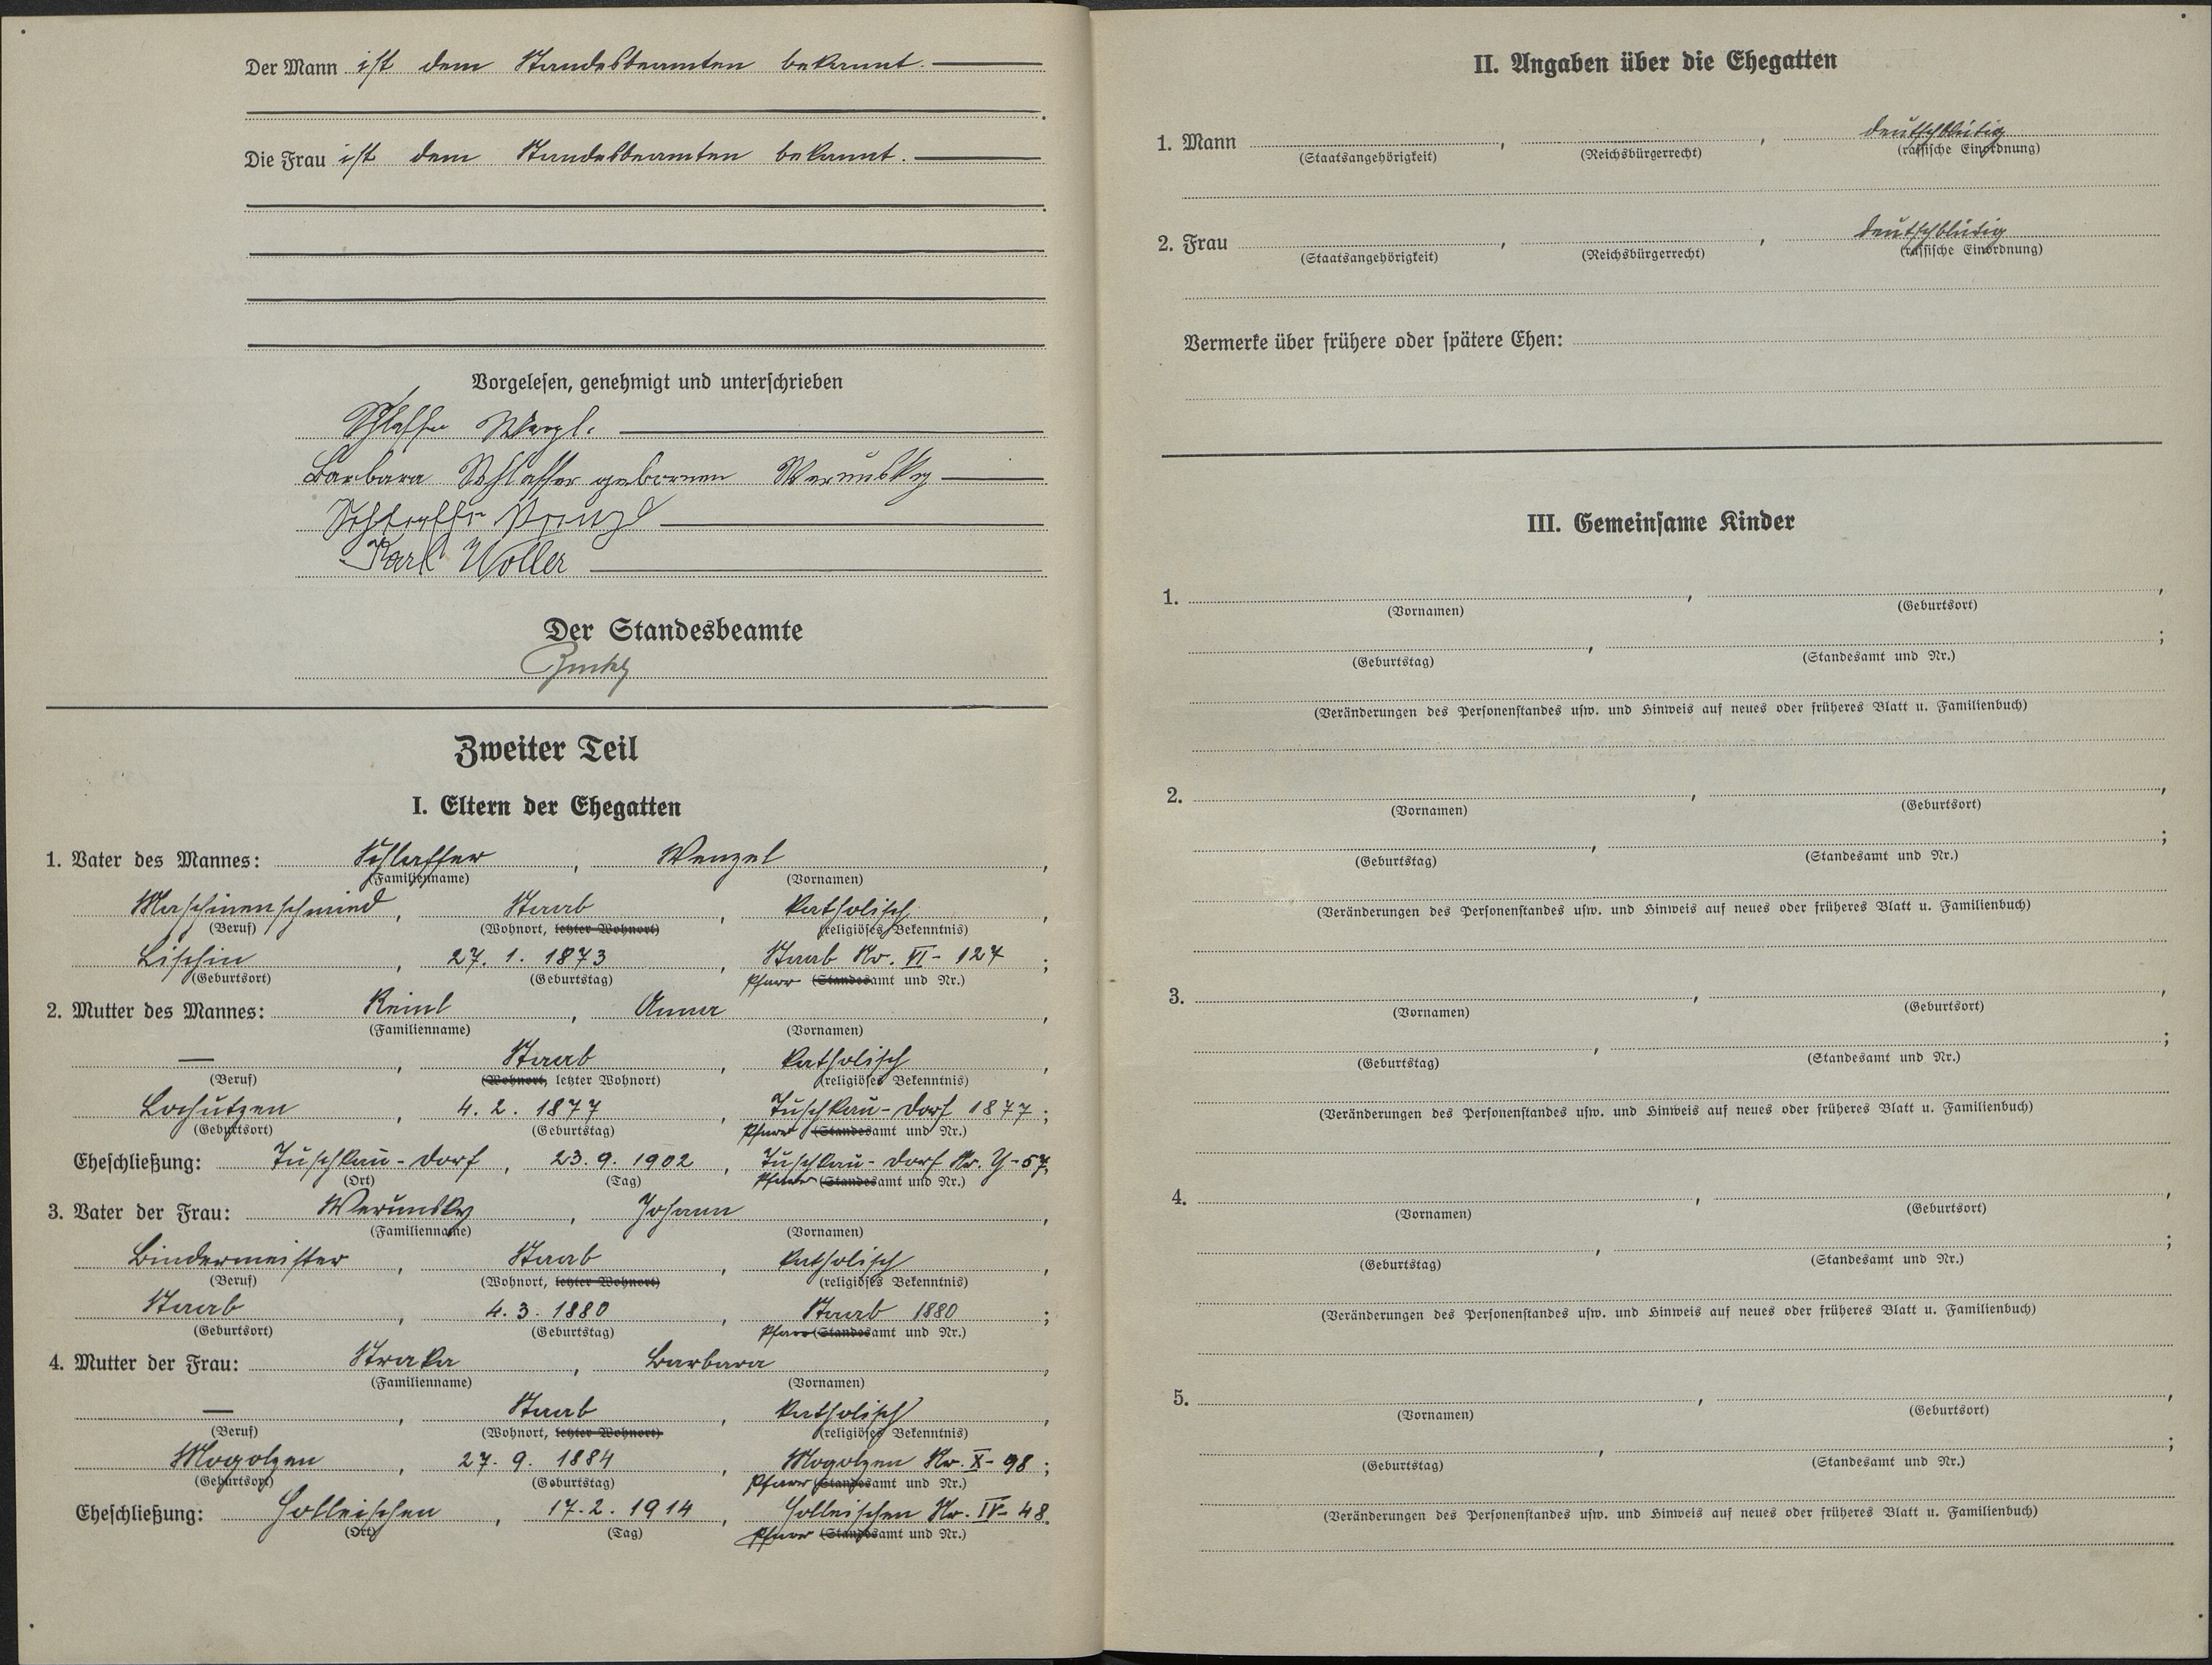 Der Mann ist dem Standesbeamten bekannt.
Die Frau ist dem Standesbeamten bekannt.
Vorgelesen, genehmigt und unterschrieben
Schlaffer Wenzl.
Barbara Schlaffer geborenen Werunsky
Schlaffer Wenzl
Karl Woller
Der Standesbeamte
Zweiter Teil
I. Eltern der Ehegatten
1. Vater des Mannes: Schlaffer, Wenzel,
(Familienname) (Vornamen)
Maschinenschmied, Staab, katholisch,
(Beruf) (Wohnort, letzter Wohnort) (religiöses Bekenntnis)
Lischin, 27. 1. 1873, Staab Nr. VI - 127;
(Geburtsort) (Geburtstag) Pfarr (Standesamt und Nr.)
2. Mutter des Mannes: Reinl, Anna,
(Familienname) (Vornamen)
—, Staab, katholisch,
(Beruf) (Wohnort, letzter Wohnort) (religiöses Bekenntnis)
Lochutzen, 4. 2. 1877, Tuschkau-Dorf 1877;
(Geburtsort) (Geburtstag) Pfarr (Standesamt und Nr.)
Eheschließung: Tuschkau-Dorf, 23. 9. 1902, Tuschkau-Dorf Nr. Y-57.
(Ort) (Tag) Pfarr (Standesamt und Nr.)
3. Vater der Frau: Werunsky, Johann,
(Familienname) (Vornamen)
Bindermeister, Staab, katholisch,
(Beruf) (Wohnort, letzter Wohnort) (religiöses Bekenntnis)
Staab, 4. 3. 1880, Staab 1880;
(Geburtsort) (Geburtstag) Pfarr (Standesamt und Nr.)
4. Mutter der Frau: Straka, Barbara,
(Familienname) (Vornamen)
—, Staab, katholisch,
(Beruf) (Wohnort, letzter Wohnort) (religiöses Bekenntnis)
Mogolzen, 27. 9. 1884, Mogolzen Nr. X - 98;
(Geburtsort) (Geburtstag) Pfarr (Standesamt und Nr.)
Eheschließung: Holleischen, 17. 2. 1914, Holleischen Nr. IV - 48.
(Ort) (Tag) Pfarr (Standesamt und Nr.)
II. Angaben über die Ehegatten
1. Mann , , deutschblütig
(Staatsangehörigkeit) (Reichsbürgerrecht) (rassische Einordnung)
2. Frau , , deutschblütig
(Staatsangehörigkeit) (Reichsbürgerrecht) (rassische Einordnung)
Vermerke über frühere oder spätere Ehen:
III. Gemeinsame Kinder
1. , ,
(Vornamen) (Geburtsort)
, ;
(Geburtstag) (Standesamt und Nr.)
(Veränderungen des Personenstandes usw. und Hinweis auf neues oder früheres Blatt u. Familienbuch)
2. , ,
(Vornamen) (Geburtsort)
, ;
(Geburtstag) (Standesamt und Nr.)
(Veränderungen des Personenstandes usw. und Hinweis auf neues oder früheres Blatt u. Familienbuch)
3. , ,
(Vornamen) (Geburtsort)
, ;
(Geburtstag) (Standesamt und Nr.)
(Veränderungen des Personenstandes usw. und Hinweis auf neues oder früheres Blatt u. Familienbuch)
4. , ,
(Vornamen) (Geburtsort)
, ;
(Geburtstag) (Standesamt und Nr.)
(Veränderungen des Personenstandes usw. und Hinweis auf neues oder früheres Blatt u. Familienbuch)
5. , ,
(Vornamen) (Geburtsort)
, ;
(Geburtstag) (Standesamt und Nr.)
(Veränderungen des Personenstandes usw. und Hinweis auf neues oder früheres Blatt u. Familienbuch)